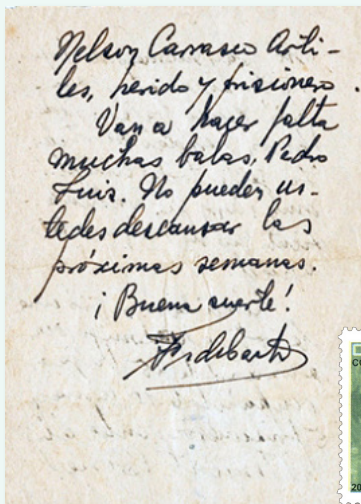 Nelson Carrasco Arti-
les, herido y prisionero.
Van a hacer falta
muchas balas, Pedro
Luis. No pueden us-
tedes descansar las
próximas semanas.
¡Buena suerte!
20